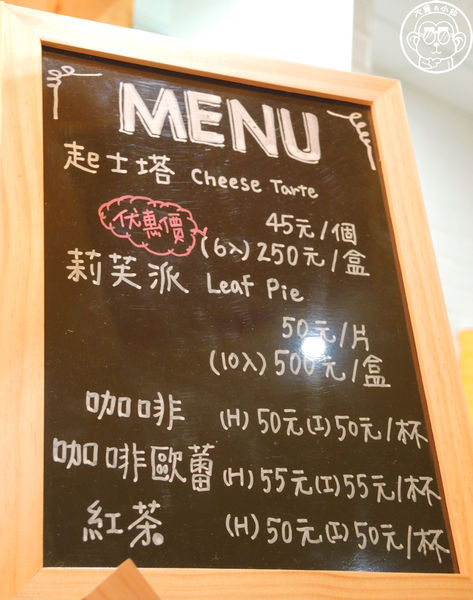 大麗&小茹
MENU
起士塔 Cheese Tarte
45元/個
优惠價 (6入) 250元/盒
莉芙派 Leaf Pie
50元/片
(10入) 500元/盒
咖啡 (H) 50元 (I) 50元/杯
咖啡歐蕾 (H) 55元 (I) 55元/杯
紅茶 (H) 50元 (I) 50元/杯